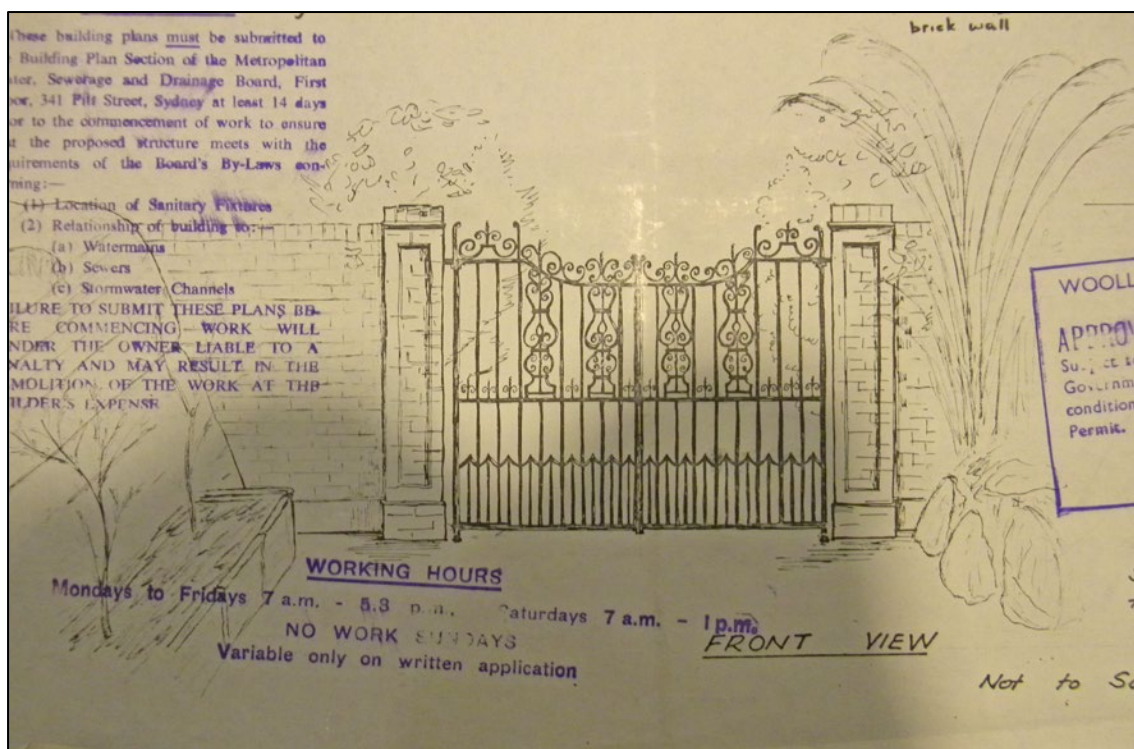 These building plans must be submitted to
Building Plan Section of the Metropolitan
Sewerage and Drainage Board, First
341 Pitt Street, Sydney at least 14 days
to the commencement of work to ensure
the proposed structure meets with the
of the Board's By-Laws con-
:—
(1) Location of Sanitary Fixtures
(2) Relationship of building to:—
(a) Watermains
(b) Sewers
(c) Stormwater Channels
LURE TO SUBMIT THESE PLANS BE-
RE COMMENCING WORK WILL
NDER THE OWNER LIABLE TO A
NALTY AND MAY RESULT IN THE
MOLITION OF THE WORK AT THE
ILDER'S EXPENSE
brick wall
WOOLL
APPROV
Governm
condition
Permit.
WORKING HOURS
Mondays to Fridays 7 a.m. - 5.3 p.m. Saturdays 7 a.m. - 1 p.m.
NO WORK SUNDAYS
Variable only on written application
FRONT VIEW
Not to Sc